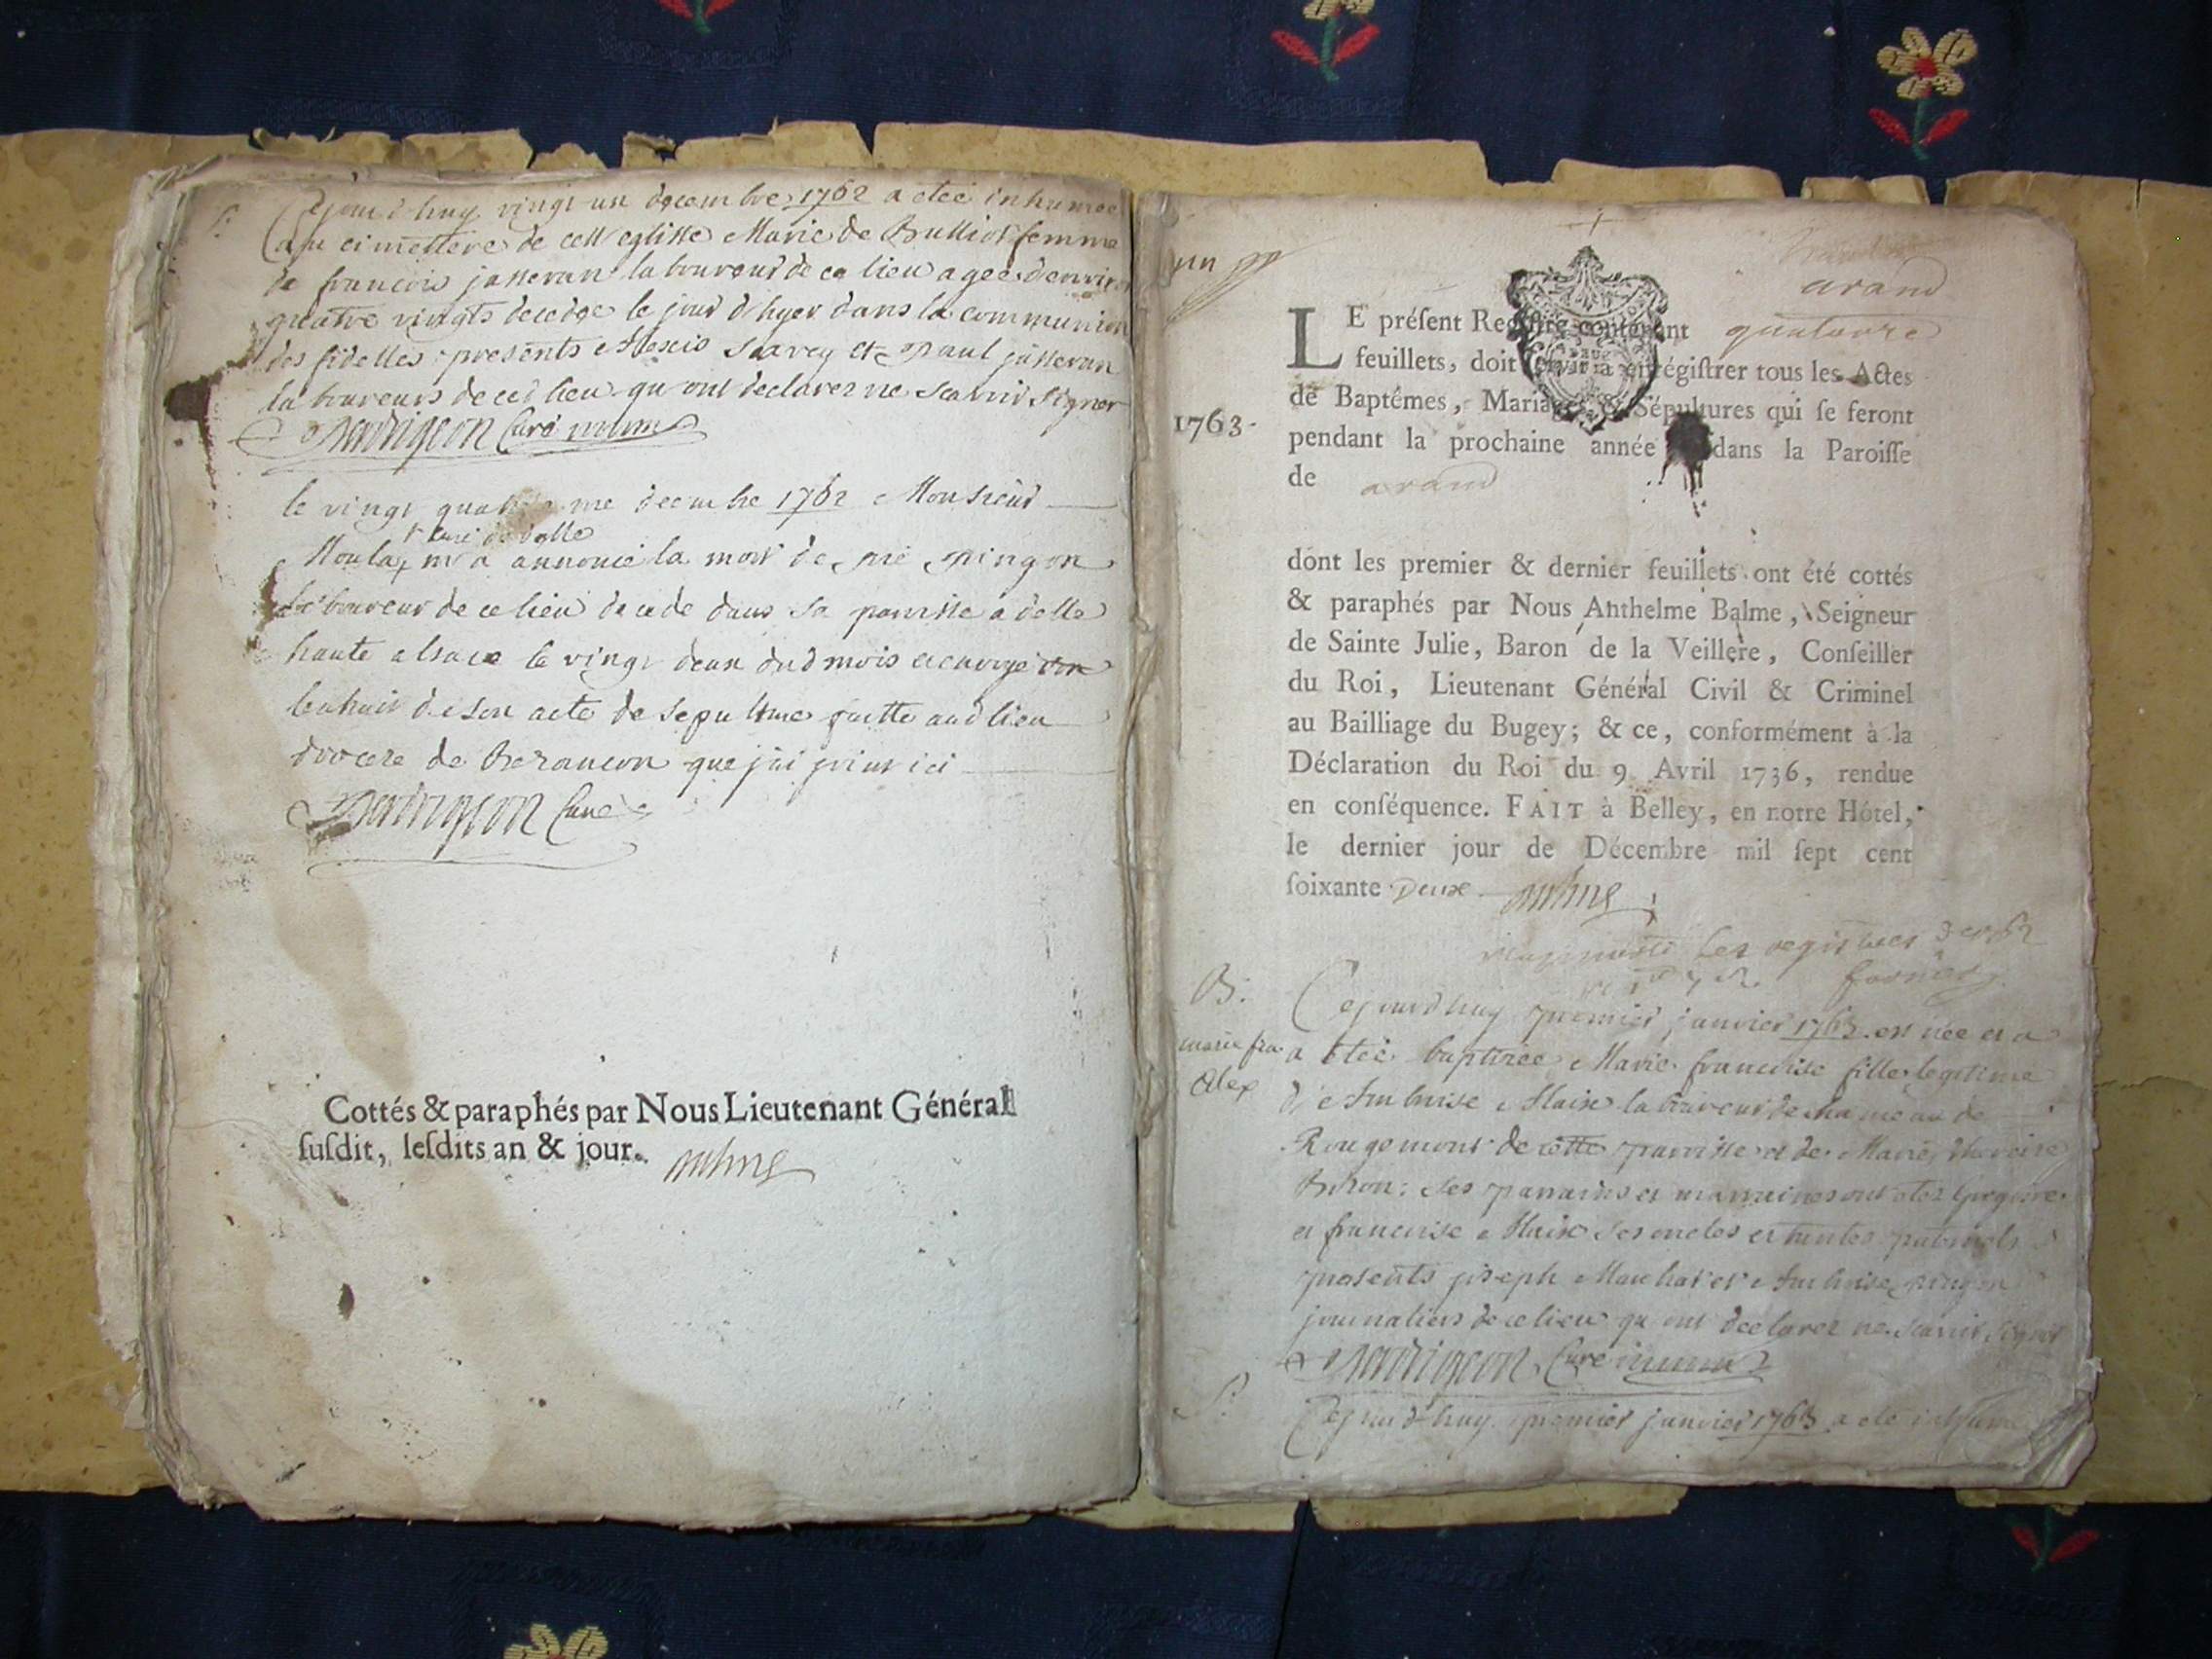 S:
Cejourd'huy vingt un decembre 1762 a eteé inhumeé
au cimettere de cett eglisse Marie de Bulliot femme
de francois jasseran laboureur de ce lieu ageé d'environ
quatre vingts decedeé le jour d'hyer dans la communion
des fidelles presents Alexis Savey et Paul jasseran
laboureurs de ced lieu qu ont declarez ne scavoir signer
Curé
le vingt decembre 1762 Monsieur
r curé de delle
Moula m'a annoncé la mort de pingon
laboureur de ce lieu decede dans sa paroisse a delle
haute alsace le vingt deux dud mois et envoyé
l'extrait de son acte de sepulture faitte aud lieu
diocese de Bezancon que j'ai joint ici
Curé
Cottés & paraphés par Nous Lieutenant Général
ſuſdit, leſdits an & jour.
un
arand
LE préſent Regiſtre contenant quatorze
feuillets, doit ſervir à enrégiſtrer tous les Actes
de Baptêmes, Mariages & Sépultures qui ſe feront
1763.
pendant la prochaine année dans la Paroiſſe
de arand
dont les premier & dernier feuillets ont été cottés
& paraphés par Nous Anthelme Balme, Seigneur
de Sainte Julie, Baron de la Veillere, Conſeiller
du Roi, Lieutenant Général Civil & Criminel
au Bailliage du Bugey; & ce, conformément à la
Déclaration du Roi du 9 Avril 1736, rendue
en conſéquence. FAIT à Belley, en notre Hôtel,
le dernier jour de Décembre mil ſept cent
ſoixante Deux
les registres
B:
marie fra
Alex
Cejourd'huy premier janvier 1763 est neé et a
a eteé baptizeé Marie francoise fille legitime
d'Ambroise Alaix laboureur de hameau de
Rougemont de cette paroisse et de Marie
ses parrains et marraines ont etez Gregoire
et francoise Alaix ses oncles et tantes paternels
presents joseph et Ambroise pingon
journaliers de ce lieu qu ont declarez ne scavoir signer
Curé
S:
Cejourd'huy premier janvier 1763 a eté inhumé